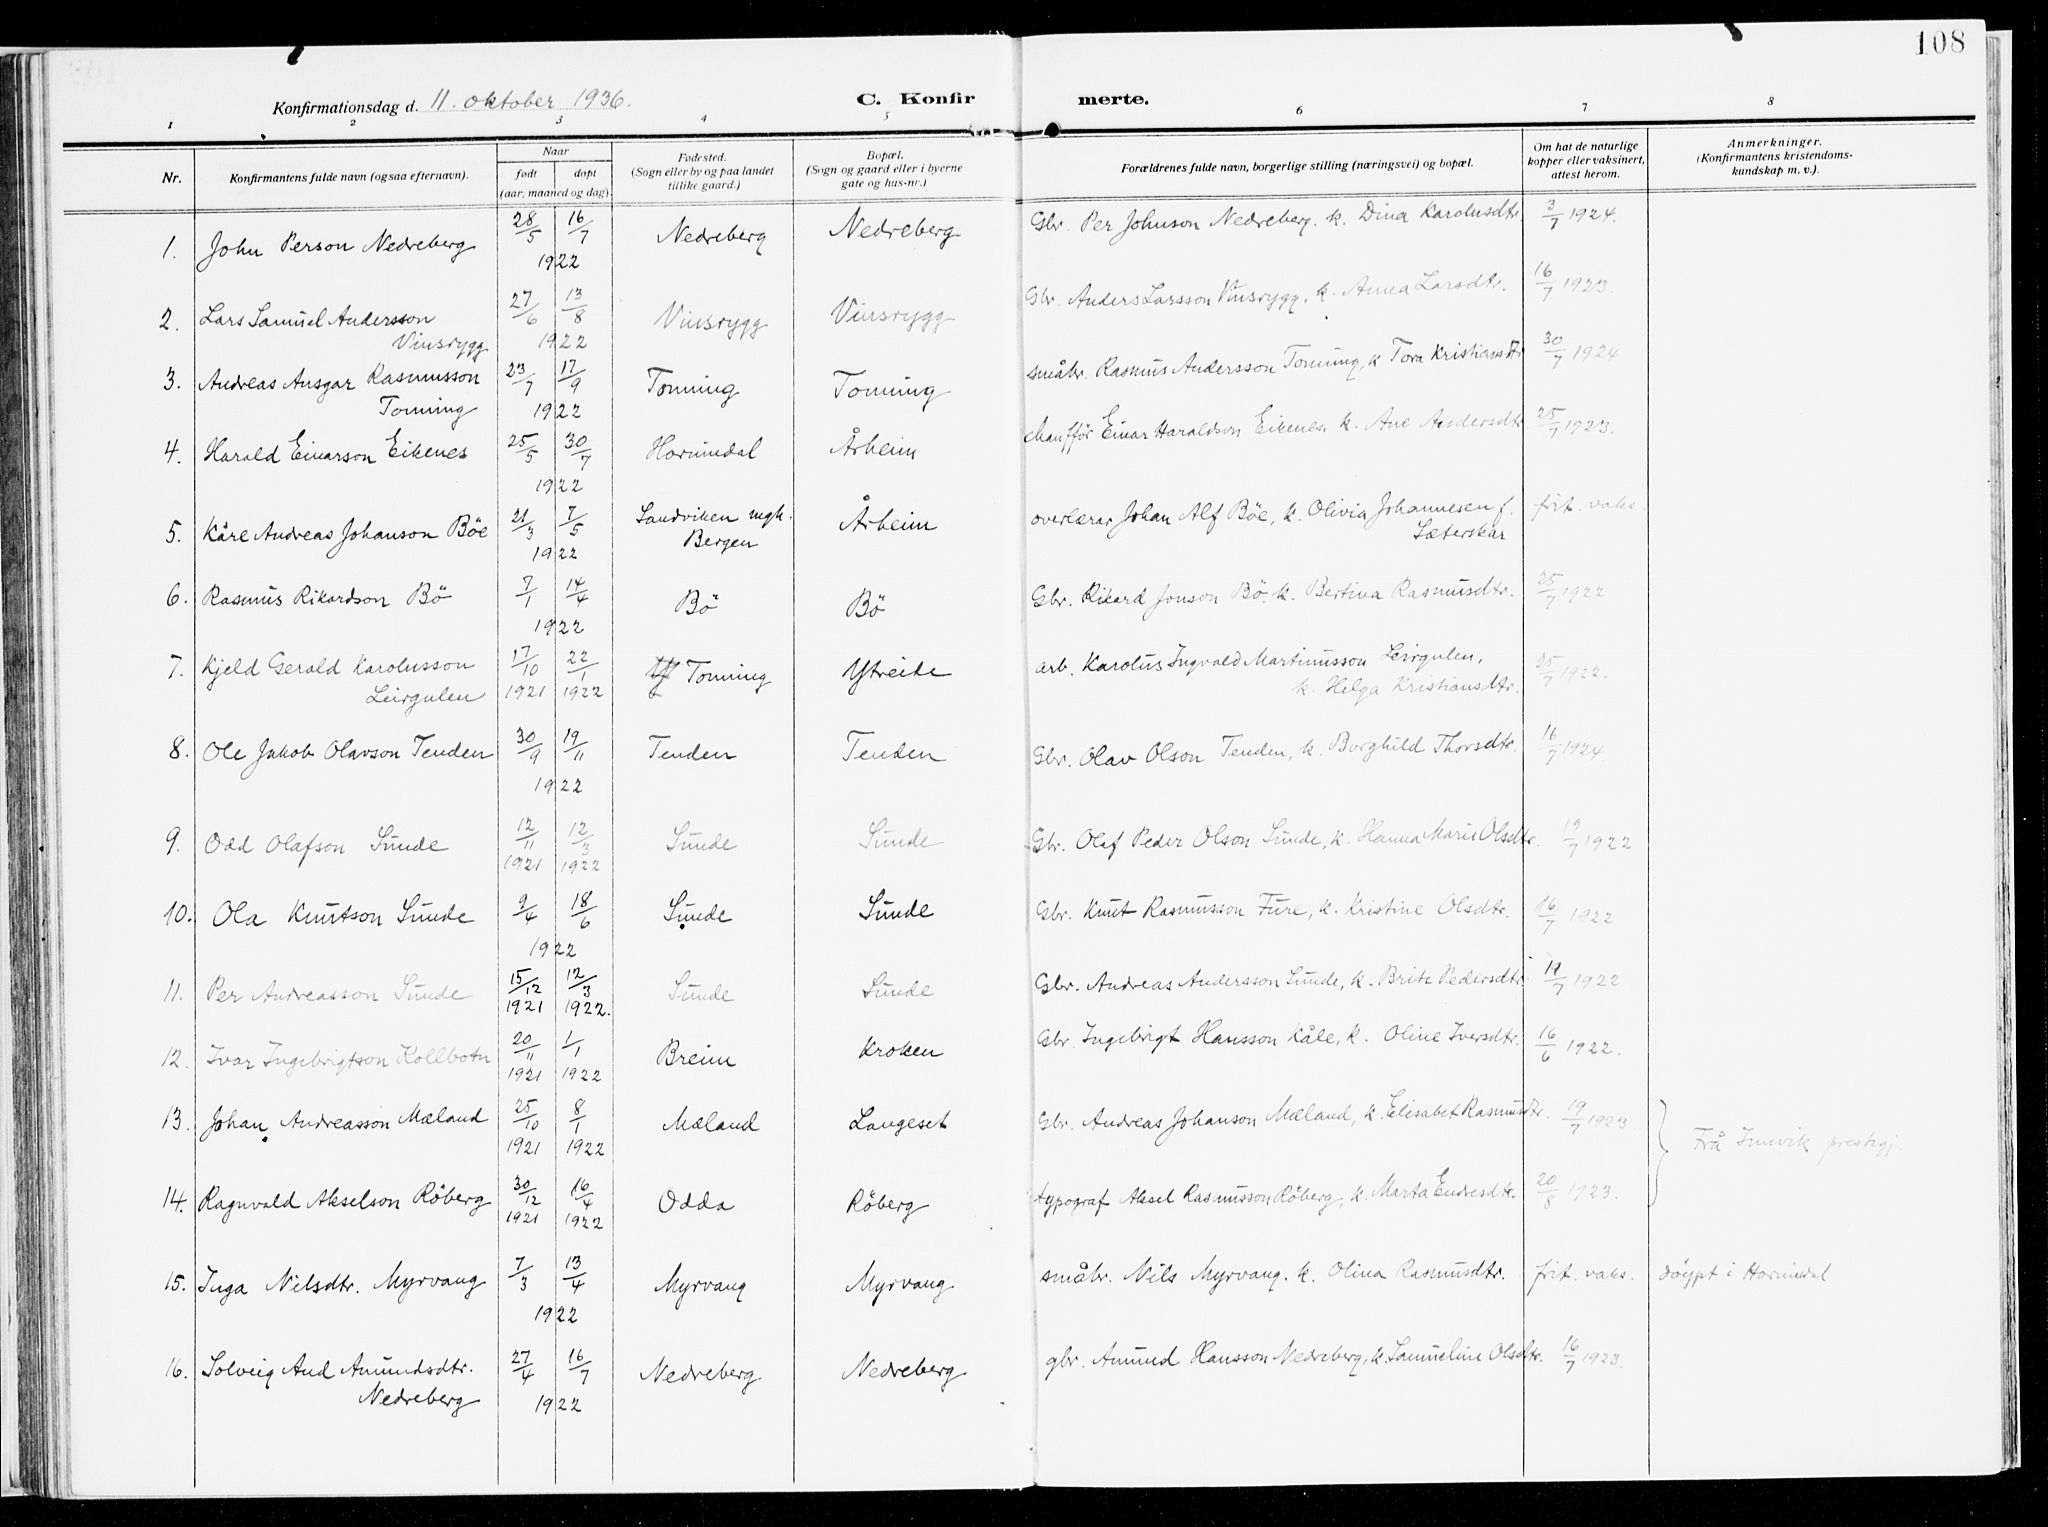 108
Konfirmationsdag d. 11. oktober 1936.
C. Konfirmerte.
1 2 3 4 5 6 7 8
Nr.
Konfirmantens fulde navn (ogsaa efternavn).
Naar
født døpt
(aar, maaned og dag).
Fødested.
(Sogn eller by og paa landet
tillike gaard.)
Bopæl.
(Sogn og gaard eller i byerne
gate og hus-nr.)
Forældrenes fulde navn, borgerlige stilling (næringsvei) og bopæl.
Om hat de naturlige
kopper eller vaksinert,
attest herom.
Anmerkninger.
(Konfirmantens kristendoms-
kundskap m. v.).
1. John Person Nedreberg 28/5 16/7 1922 Nedreberg Nedreberg Gbr. Per Johnson Nedreberg. k. Dina Karolusdtr 3/7 1924.
2. Lars Samuel Andersson
Vinsrygg 27/6 13/8 1922 Vinsrygg Vinsrygg Gbr. Anders Larsson Vinsrygg, k. Anna Larsdtr. 16/7 1923.
3. Andreas Ansgar Rasmusson
Tonning 23/7 17/9 1922 Tonning Tonning småbr. Rasmus Andersson Tonning, k Tora Kristiansdtr 30/7 1924
4. Harald Einarson Eikenes 25/5 30/7 1922 Hornindal Årheim chauffför Einar Haraldson Eikenes, k. Ane Andersdtr 25/7 1923.
5. Kåre Andreas Johanson Böe 21/3 7/5 1922 Sandviken mgh.
Bergen Årheim overlærar Johan Alf Böe, k. Olivia Johannesen f.
Sæterskar frit. vaks.
6. Rasmus Rikardson Bö 7/1 14/4 1922 Bö Bö Gbr. Rikard Jonson Bö. k. Bertina Rasmusdtr. 25/7 1922
7. Kjeld Gerald Karolusson
Leirgulen 17/10 1921 22/1 1922 Tonning Ytreide arb. Karolus Ingvald Martinusson Leirgulen,
k. Helga Kristiansdtr. 25/7 1922.
8. Ole Jakob Olavson Tenden 30/9 19/11 1922 Tenden Tenden Gbr. Olav Olson Tenden, k. Borghild Thorsdtr. 16/7 1924.
9. Odd Olafson Sunde 12/11 1921 12/3 1922 Sunde Sunde Gbr. Olaf Peder Olson Sunde, k. Hanna Marie Olsdtr. 19/7 1922
10. Ola Knutson Sunde 9/4 18/6 1922 Sunde Sunde Gbr. Knut Rasmusson Fure, k. Kristine Olsdtr. 16/7 1922
11. Per Andreasson Sunde 15/12 1921 12/3 1922. Sunde Sunde Gbr. Andreas Andersson Sunde, k. Brite Pedersdtr. 19/7 1922
12. Ivar Ingebrigtson Kollbotn 20/11 1921 1/1 1922 Breim Kroken Gbr. Ingebrigt Hansson Kåle, k. Oline Iversdtr. 16/6 1922.
13. Johan Andreasson Mæland 25/10 1921 8/1 1922 Mæland Langeset Gbr. Andreas Johanson Mæland, k. Elisabet Rasmusdtr. 19/7 1923
Frå Innvik prestegj.
14. Ragnvald Akselson Röberg 30/12 1921 16/4 1922 Odda Röberg typograf Aksel Rasmusson Röberg, k. Marta Endresdtr. 20/8 1923.
15. Inga Nilsdtr. Myrvang 7/3 13/4 1922 Myrvang Myrvang småbr. Nils Myrvang. k. Olina Rasmusdtr. frit. vaks. döypt i Hornindal
16. Solveig Aud Amundsdtr.
Nedreberg 27/4 16/7 1922 Nedreberg Nedreberg gbr. Amund Hansson Nedreberg, k. Samueline Olsdtr. 16/7 1923.